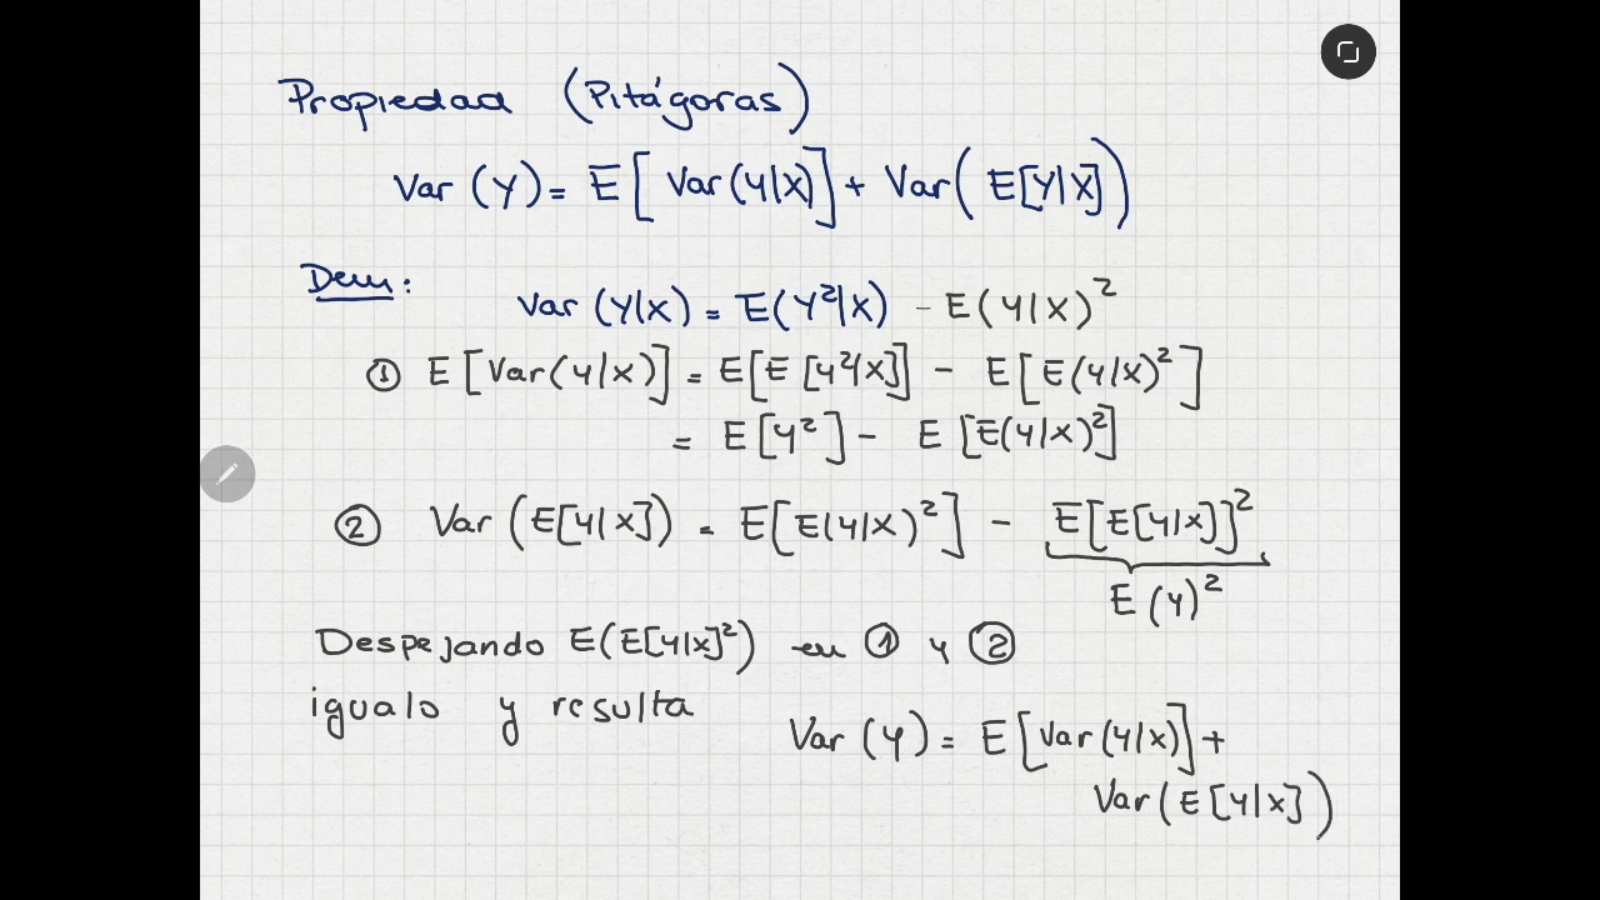 Propiedad (Pitágoras)
Var (Y) = E[Var(Y|X)] + Var(E[Y|X])
Dem:
Var (Y|X) = E(Y²|X) - E(Y|X)²
① E[Var(Y|X)] = E[E[Y²|X]] - E[E(Y|X)²]
= E[Y²] - E[E(Y|X)²]
② Var(E[Y|X]) = E[E(Y|X)²] - E[E[Y|X]]²
E(Y)²
Despejando E(E[Y|X]²) en ① y ②
igualo y resulta
Var (Y) = E[Var(Y|X)] +
Var(E[Y|X])